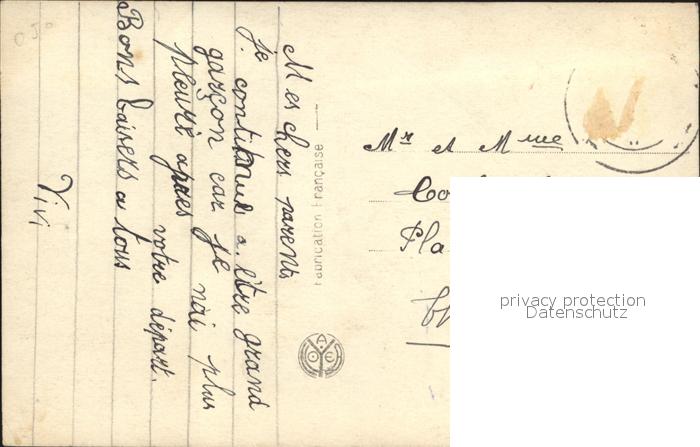 Mes chers parents
je continue a être grand
garçon car je n'ai plus
pleuré apres
votre départ.
Bons baisers a tous
Vivi
Fabrication Française
Mr et Mme
Pla
privacy protection
Datenschutz